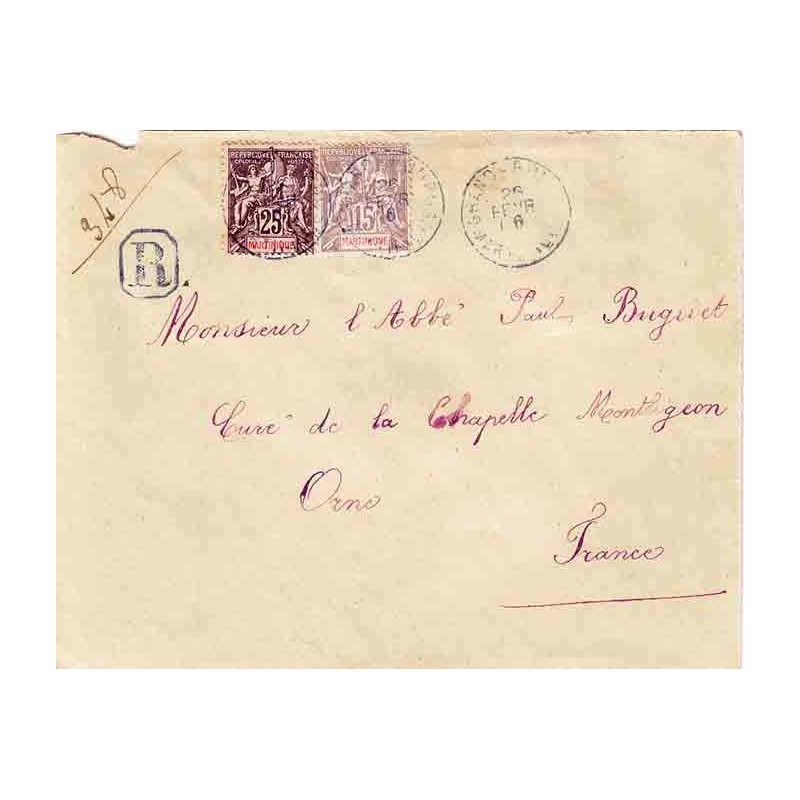 3/8
REPUBLIQUE FRANÇAISE
COLONIES POSTES
25
MARTINIQUE
REPUBLIQUE FRANÇAISE
COLONIES POSTES
15
MARTINIQUE
26
FEVR
26
FEVR
R
Monsieur l'Abbé Paul Buguet
Curé de la Chapelle Montligeon
Orne
France